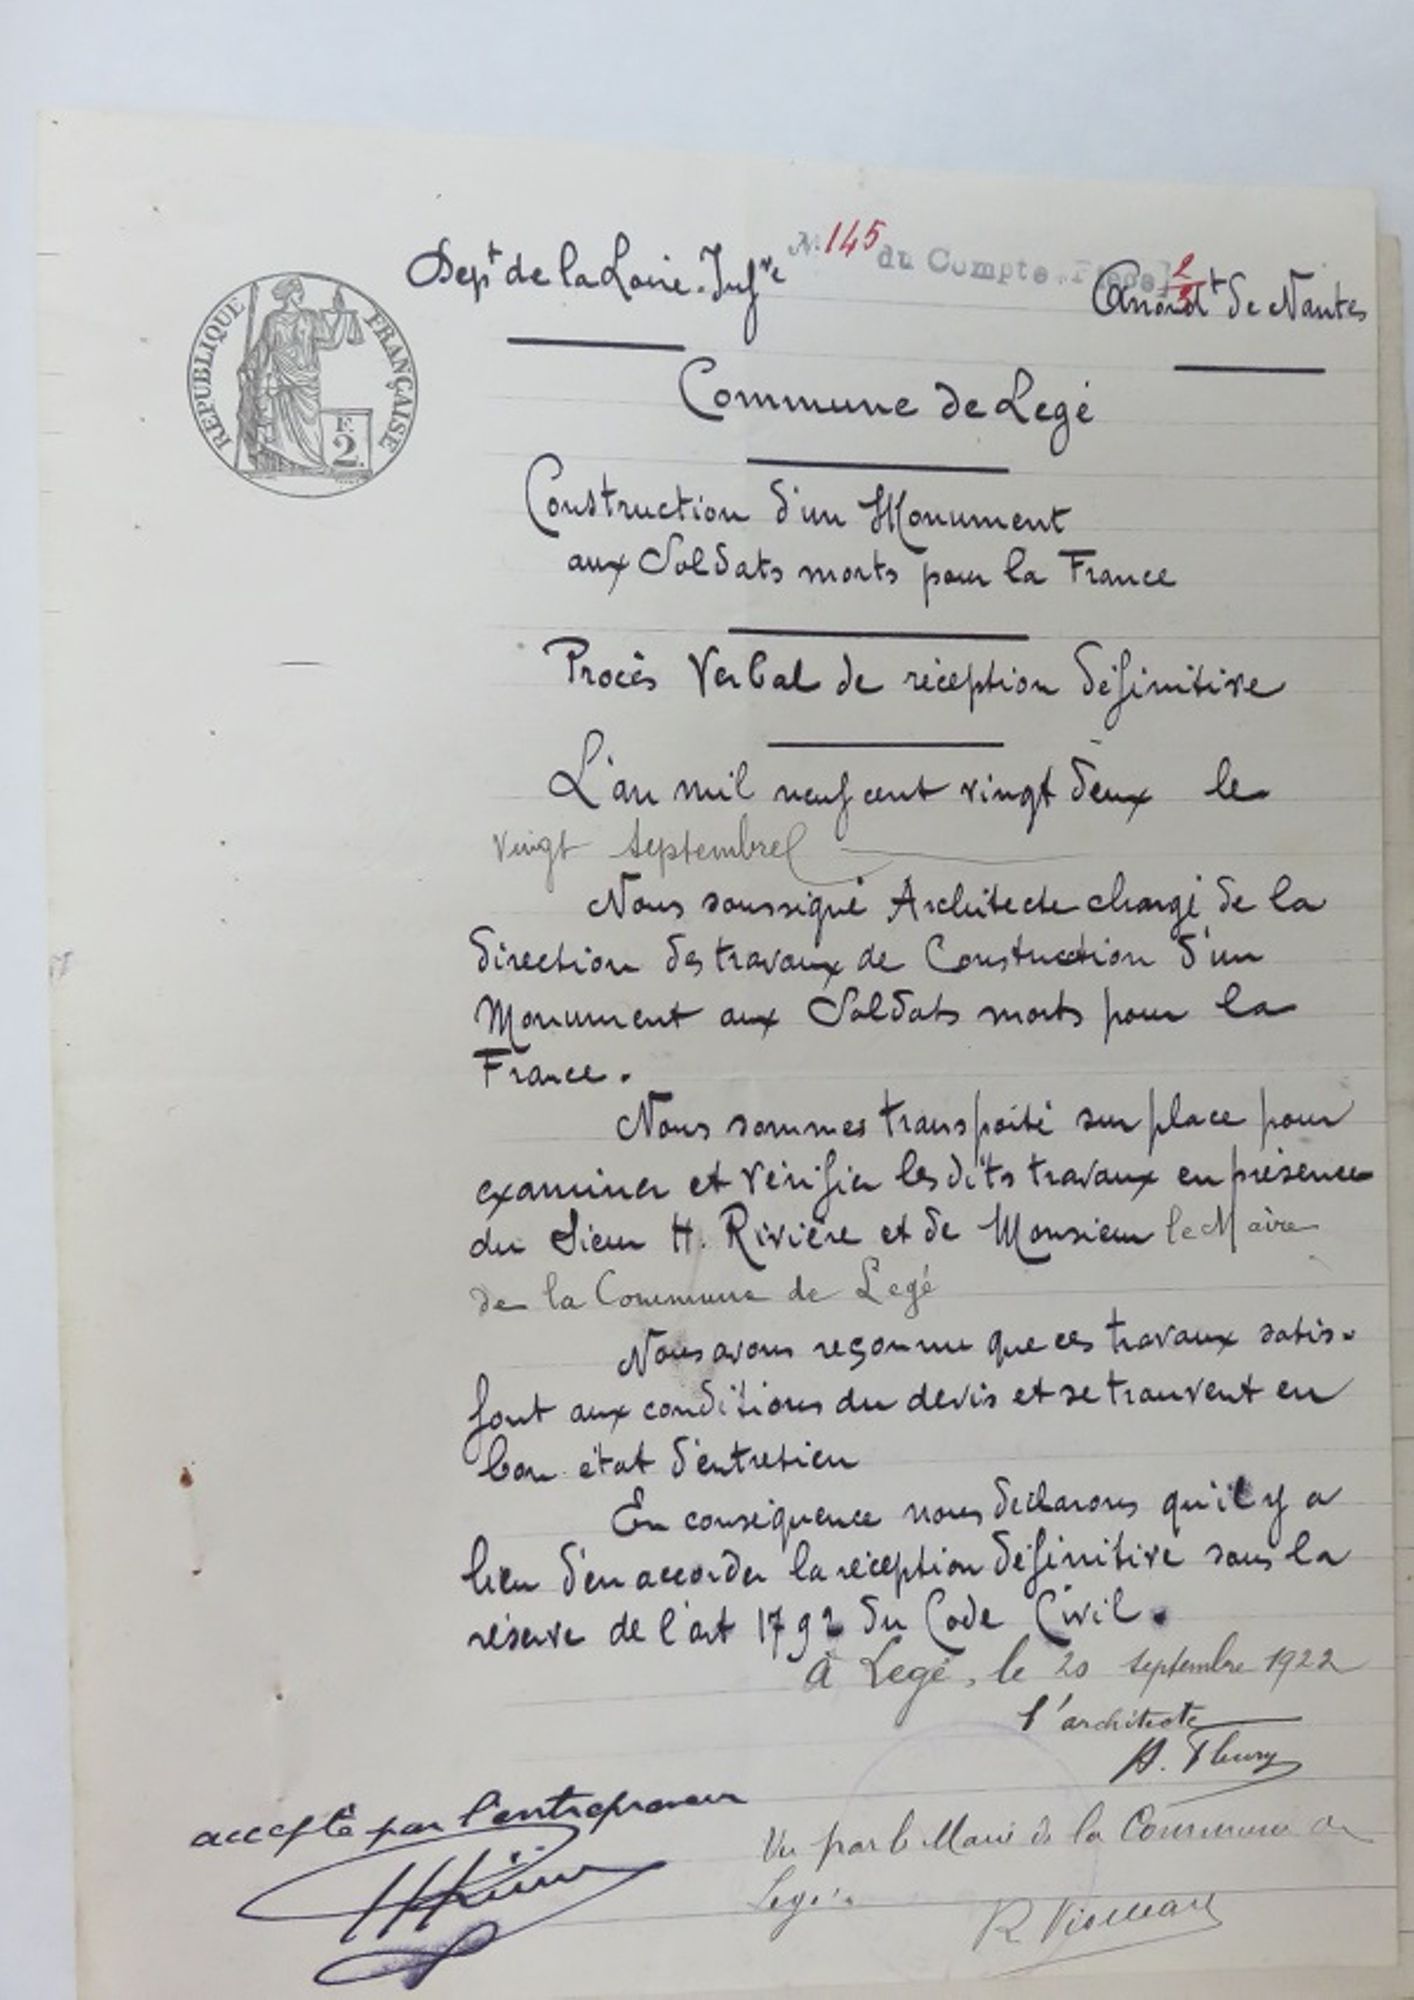 Dept de la Loire-Infre
N. 145 du Compte. Pièce 2/3
Arrondt de Nantes
RÉPUBLIQUE FRANÇAISE
F.
2.
Commune de Legé
Construction d'un Monument
aux Soldats morts pour la France
Procès Verbal de réception définitive
L'an mil neuf cent vingt deux le
vingt septembre
Nous soussigné Architecte chargé de la
direction des travaux de Construction d'un
Monument aux Soldats morts pour la
France.
Nous sommes transporté sur place pour
examiner et vérifier les dits travaux en présence
du Sieur H. Rivière et de Monsieur le Maire
de la Commune de Legé
Nous avons reçonnu que ces travaux satis-
font aux conditions du devis et se trouvent en
bon état d'entretien
En conséquence nous déclarons qu'il y a
lieu d'en accorder la réception définitive sous la
réserve de l'art 1792 du Code Civil.
à Legé, le 20 septembre 1922
l'architecte
A. Fleury
accepté par l'entrepreneur
HRivière
Vu par le Maire de la Commune de
Legé